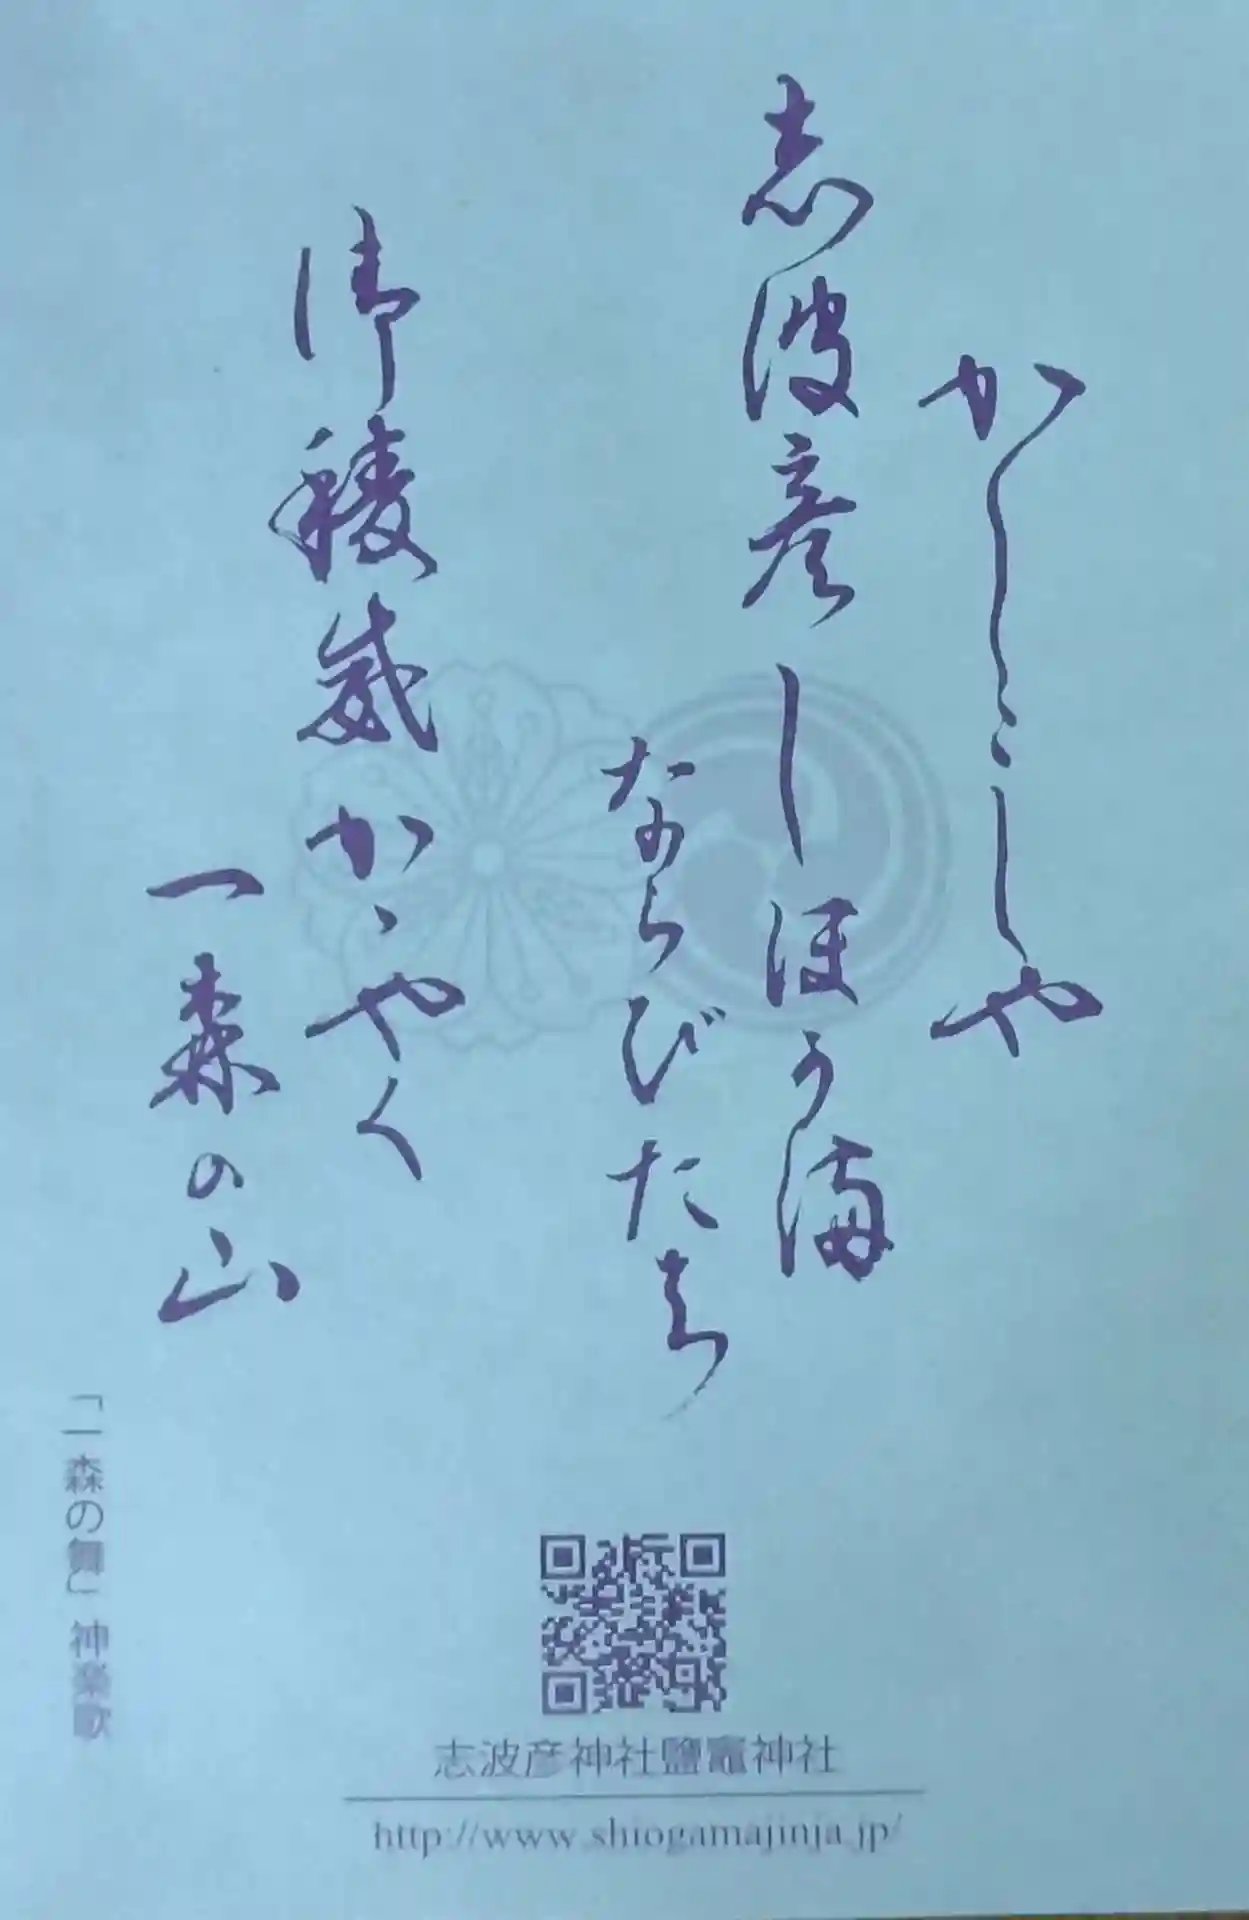 かしこしや
志波彦しほう満
ならびたち
御稜威かゝやく
一森の山
「一森の舞」神楽歌
志波彦神社鹽竈神社
http://www.shiogamajinja.jp/